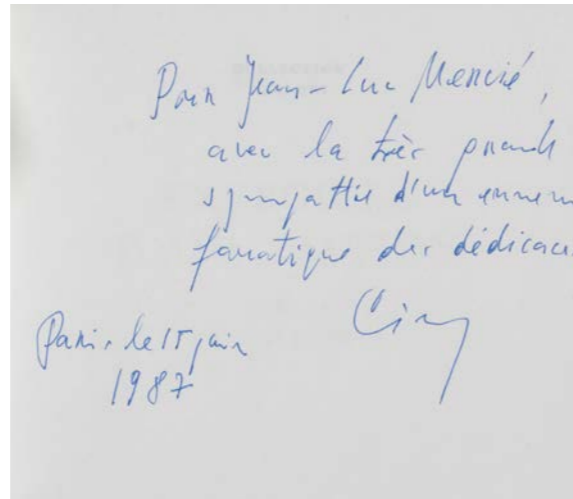 Pour Jean-Luc Mercié,
avec la très grande
sympathie d'un ennem
fanatique des dédicace
Paris, le 15 juin
1987